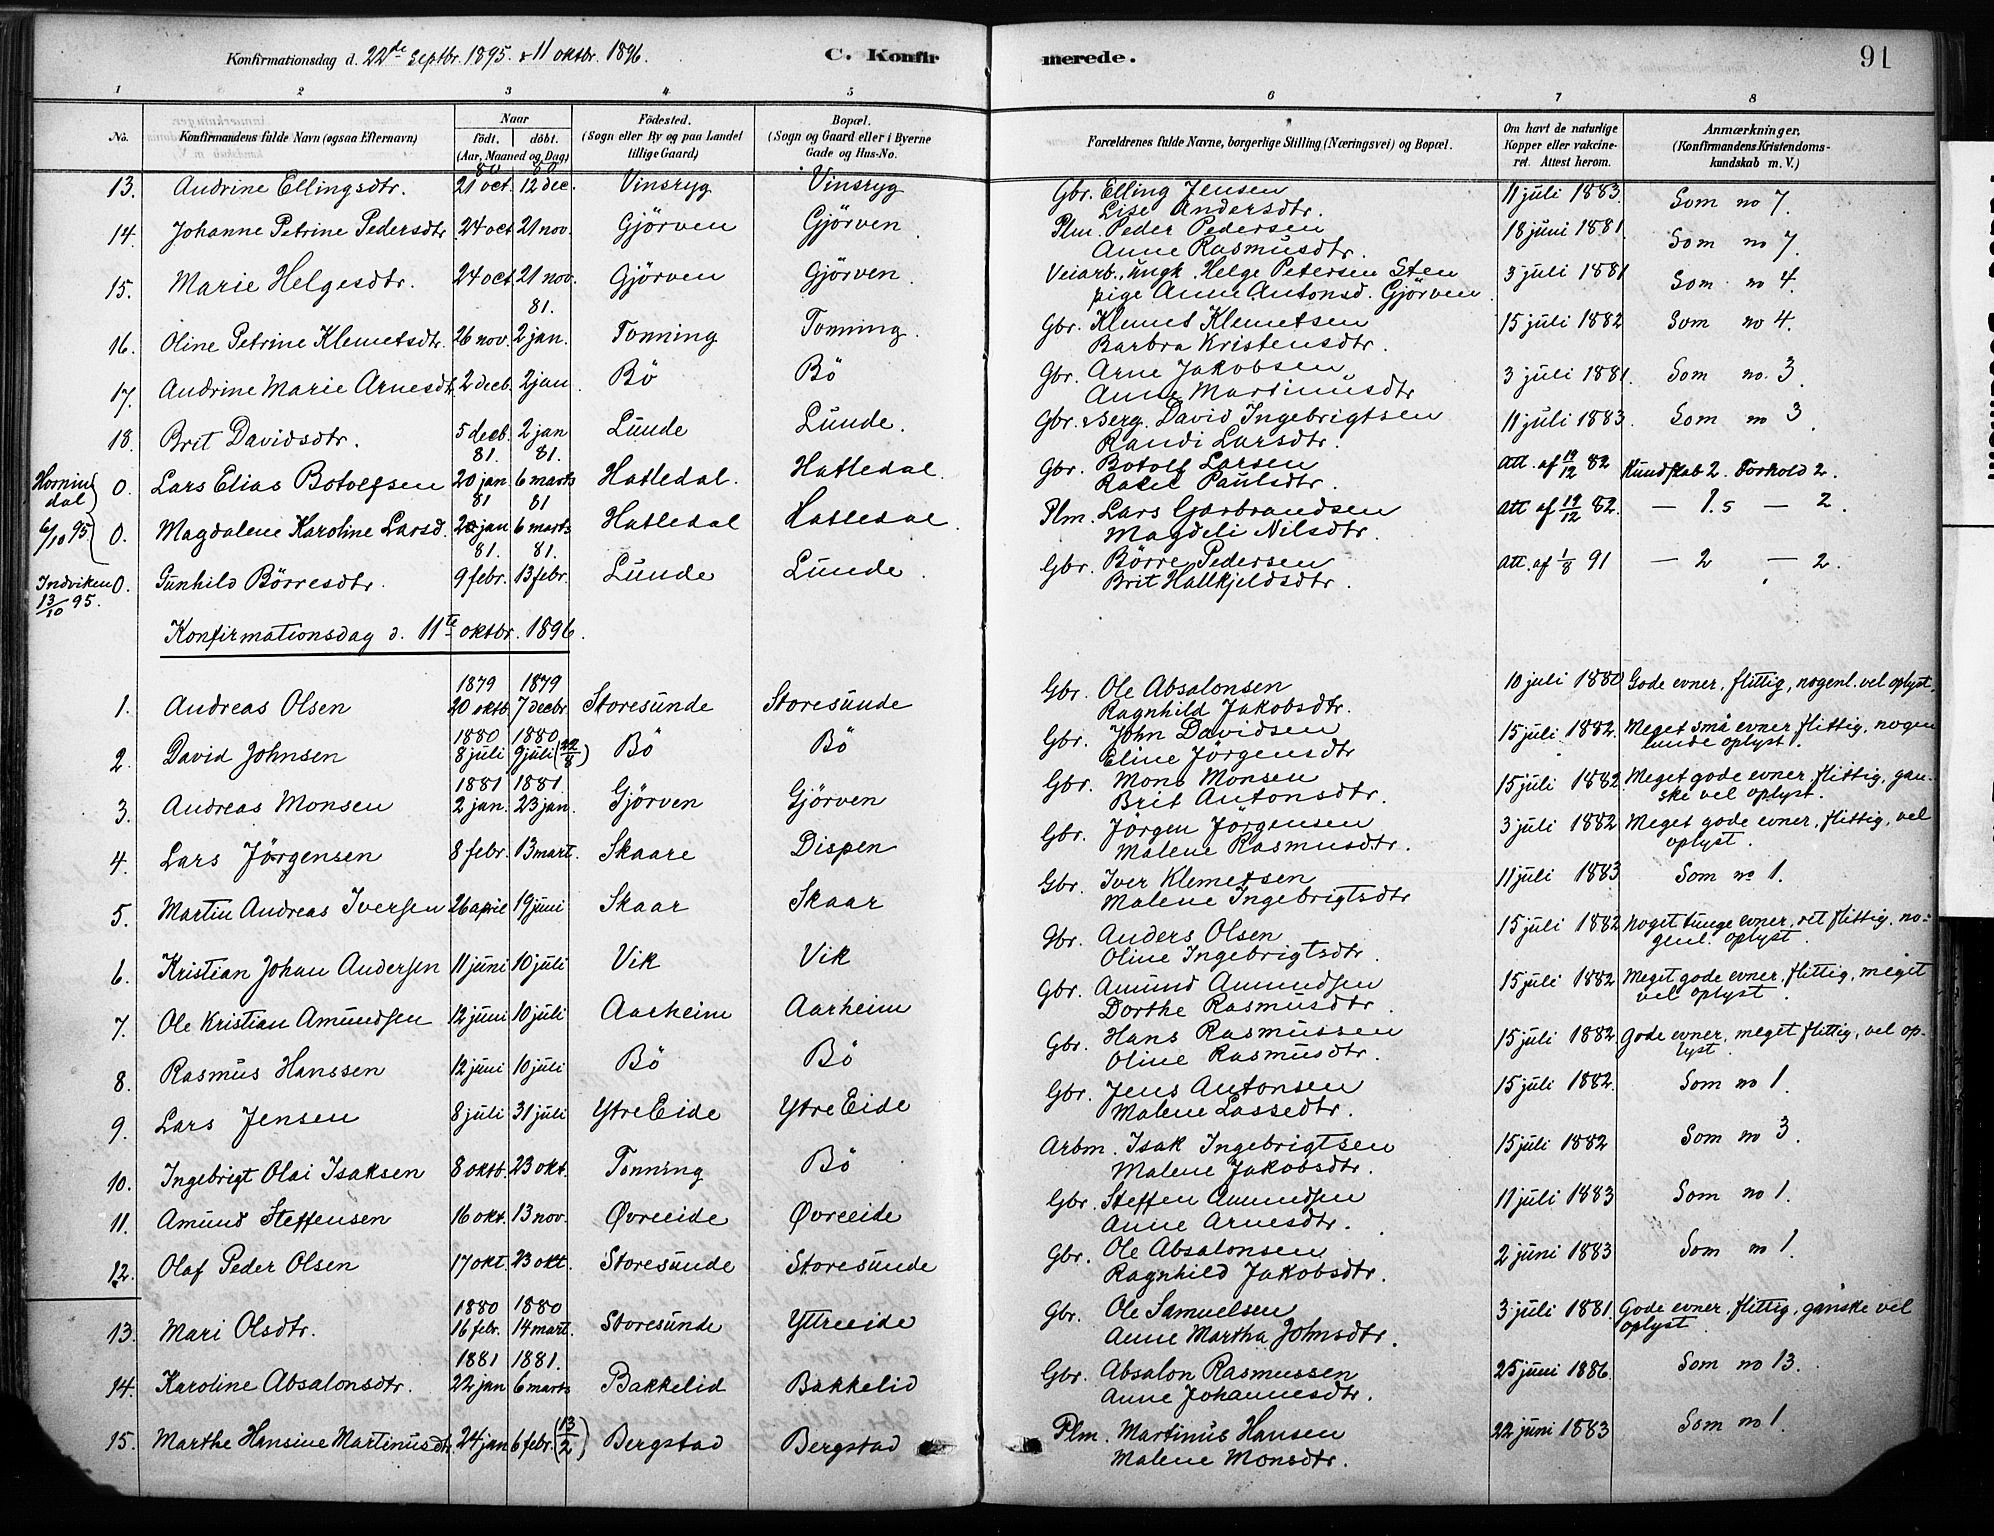 Konfirmationsdag d. 22de Septbr. 1895. & 11 oktbr. 1896. C. Konfirmerede. 91
1 2 3 4 5 6 7 8
No. Konfirmandens fulde Navn (ogsaa Efternavn) Naar født. døbt. (Aar, Maaned og Dag) Fødested. (Sogn eller By og paa Landet tillige Gaard) Bopæl. (Sogn og Gaard eller i Byerne Gade og Hus-No. Forældrenes fulde Navne, borgerlige Stilling (Næringsvei) og Bopæl. Om havt de naturlige Kopper eller vakcineret. Attest herom. Anmærkninger, (Konfirmandens Kristendomskundskab m. V.)
80 80
13. Andrine Ellingsdtr. 21 oct. 12 dec. Vinsryg Vinsryg Gbr. Elling Jensen 11 juli 1883. Som no 7.
Lise Andersdtr.
14. Johanne Petrine Pedersdtr 24 oct 21 nov. Gjörven Gjörven Plm. Peder Pedersen 18 juni 1881. Som no 7.
Anne Rasmusdtr.
15. Marie Helgesdtr. 24 oct. 21 nov. Gjörven Gjörven Veiarb., ungk. Helge Petersen Sten 3 juli 1881 Som no 4.
pige Anne Antonsd. Gjörven.
81.
16. Oline Petrine Klemetsdtr. 26 nov. 2 jan. Tonning Tonning. Gbr. Klemet Klemetsen 15 juli 1882 Som no 4.
Barbra Kristensdtr.
17. Andrine Marie Arnesdt. 2 decb. 2 jan. Bö Bö Gbr. Arne Jakobsen, 3 juli 1881. Som no. 3.
Anne Martinusdtr
18. Brit Davidsdtr. 5 decb. 2 jan Lunde Lunde. Gbr. & Berg. David Ingebrigtsen 11 juli 1883. Som no 3.
Randi Larsdtr.
81. 81.
Hornindal 6/10 95
0. Lars Elias Botolfsen 20 jan 6 marts Hatledal. Hatledal. Gbr. Botolf Larsen Att. af 19/12 82 Kundskab 2. Forhold 2.
Paulsdtr.
81 81
0. Magdalene Karoline Larsd. 20 jan 6 marts. Hatledal Hatledal. Plm. Lars Garbrandsen Att af 19/12 82. — 1.5 — 2.
Magdeli Nilsdtr.
81. 81.
Indviken 13/10 95.
0. Gunhild Börresdtr. 9 febr. 13 febr. Lunde Lunde. Gbr. Börre Pedersen Att. af 1/8 91 — 2 — 2.
Brit Hallkjeldsdtr.
Konfirmationsdag d. 11te oktbr. 1896.
1879 1879
1. Andreas Olsen 20 oktb. 7 decbr Storesunde Storesunde Gbr. Ole Absalonsen 10 juli 1880 Gode evner, flittig, nogenl. vel oplyst.
Ragnhild Jakobsdtr.
1880 1880
2. David Johnsen 8 juli 9 juli (22/8) Bö Bö Gbr. John Davidsen 15 juli 1882. Meget små evner, flittig, nogenlunde oplyst.
Eline Jörgensdtr
1881 1881.
3. Andreas Monsen 2 jan. 23 jan. Gjörven Gjörven Gbr. Mons Monsen 15 juli 1882. Meget gode evner, flittig, ganske vel oplyst.
Brit Antonsdtr.
4. Lars Jörgensen 8 febr. 13 mart. Skaare Dispen Gbr. Jörgen Jörgensen 3 juli 1882 Meget gode evner, flittig, vel oplyst.
Malene Rasmusdtr.
5. Martin Andreas Iversen 26 april 19 juni Skaar Skaar Gbr. Iver Klemetsen 11 juli 1883 Som no 1.
Malene Ingebrigtsdtr
6. Kristian Johan Andersen 11 juni 10 juli Vik Vik Gbr. Anders Olsen 15 juli 1882 Noget tunge evner, ret flittig, nogenl. oplyst.
Oline Ingebrigtsdtr.
7. Ole Kristian Amundsen 12 juni 10 juli Aarheim Aarheim Gbr. Amund Amundsen 15 juli 1882 Meget gode evner, flittig, meget vel oplyst.
Dorthe Rasmusdtr.
8. Rasmus Hanssen 12 juni 10 juli Bö Bö Gbr. Hans Rasmussen 15 juli 1882 Gode evner, meget flittig, vel oplyst.
Oline Rasmusdtr.
9. Lars Jensen 8 juli 31 juli Ytre Eide Ytre Eide Gbr. Jens Antonsen 15 juli 1882. Som no 1.
Malene Lassedtr.
10. Ingebrigt Olai Isaksen 8 oktb. 23 okt. Tonning Bö Arbm. Isak Ingebrigtsen 15 juli 1882 Som no 3.
Malene Jakobsdtr.
11. Amund Steffensen 16 okt. 13 nov. Øvreeide Øvreeide Gbr. Steffen Amundsen 11 juli 1883 Som no 1.
Anne Arnesdtr.
12. Olaf Peder Olsen 17 okt. 23 okt. Storesunde Storesunde Gbr. Ole Absalonsen 2 juni 1883 Som no 1.
Ragnhild Jakobsdtr.
1880 1880
13. Mari Olsdtr. 16 febr. 14 mart. Storesunde Yttreeide Gbr. Ole Samuelsen 3 juli 1881. Gode evner, flittig, ganske vel oplyst.
Anne Martha Johnsdtr.
1881 1881.
14. Karoline Absalonsdtr. 22 jan 6 marts Bakkelid Bakkelid Gbr. Absalon Rasmussen 25 juni 1886. Som no 13.
Anne Johannesdtr.
15. Marthe Hansine Martinusdtr. 24 jan 6 febr. (13/2) Bergstad Bergstad Plm. Martinus Hansen 22 juni 1883 Som no 1.
Malene Monsdtr.